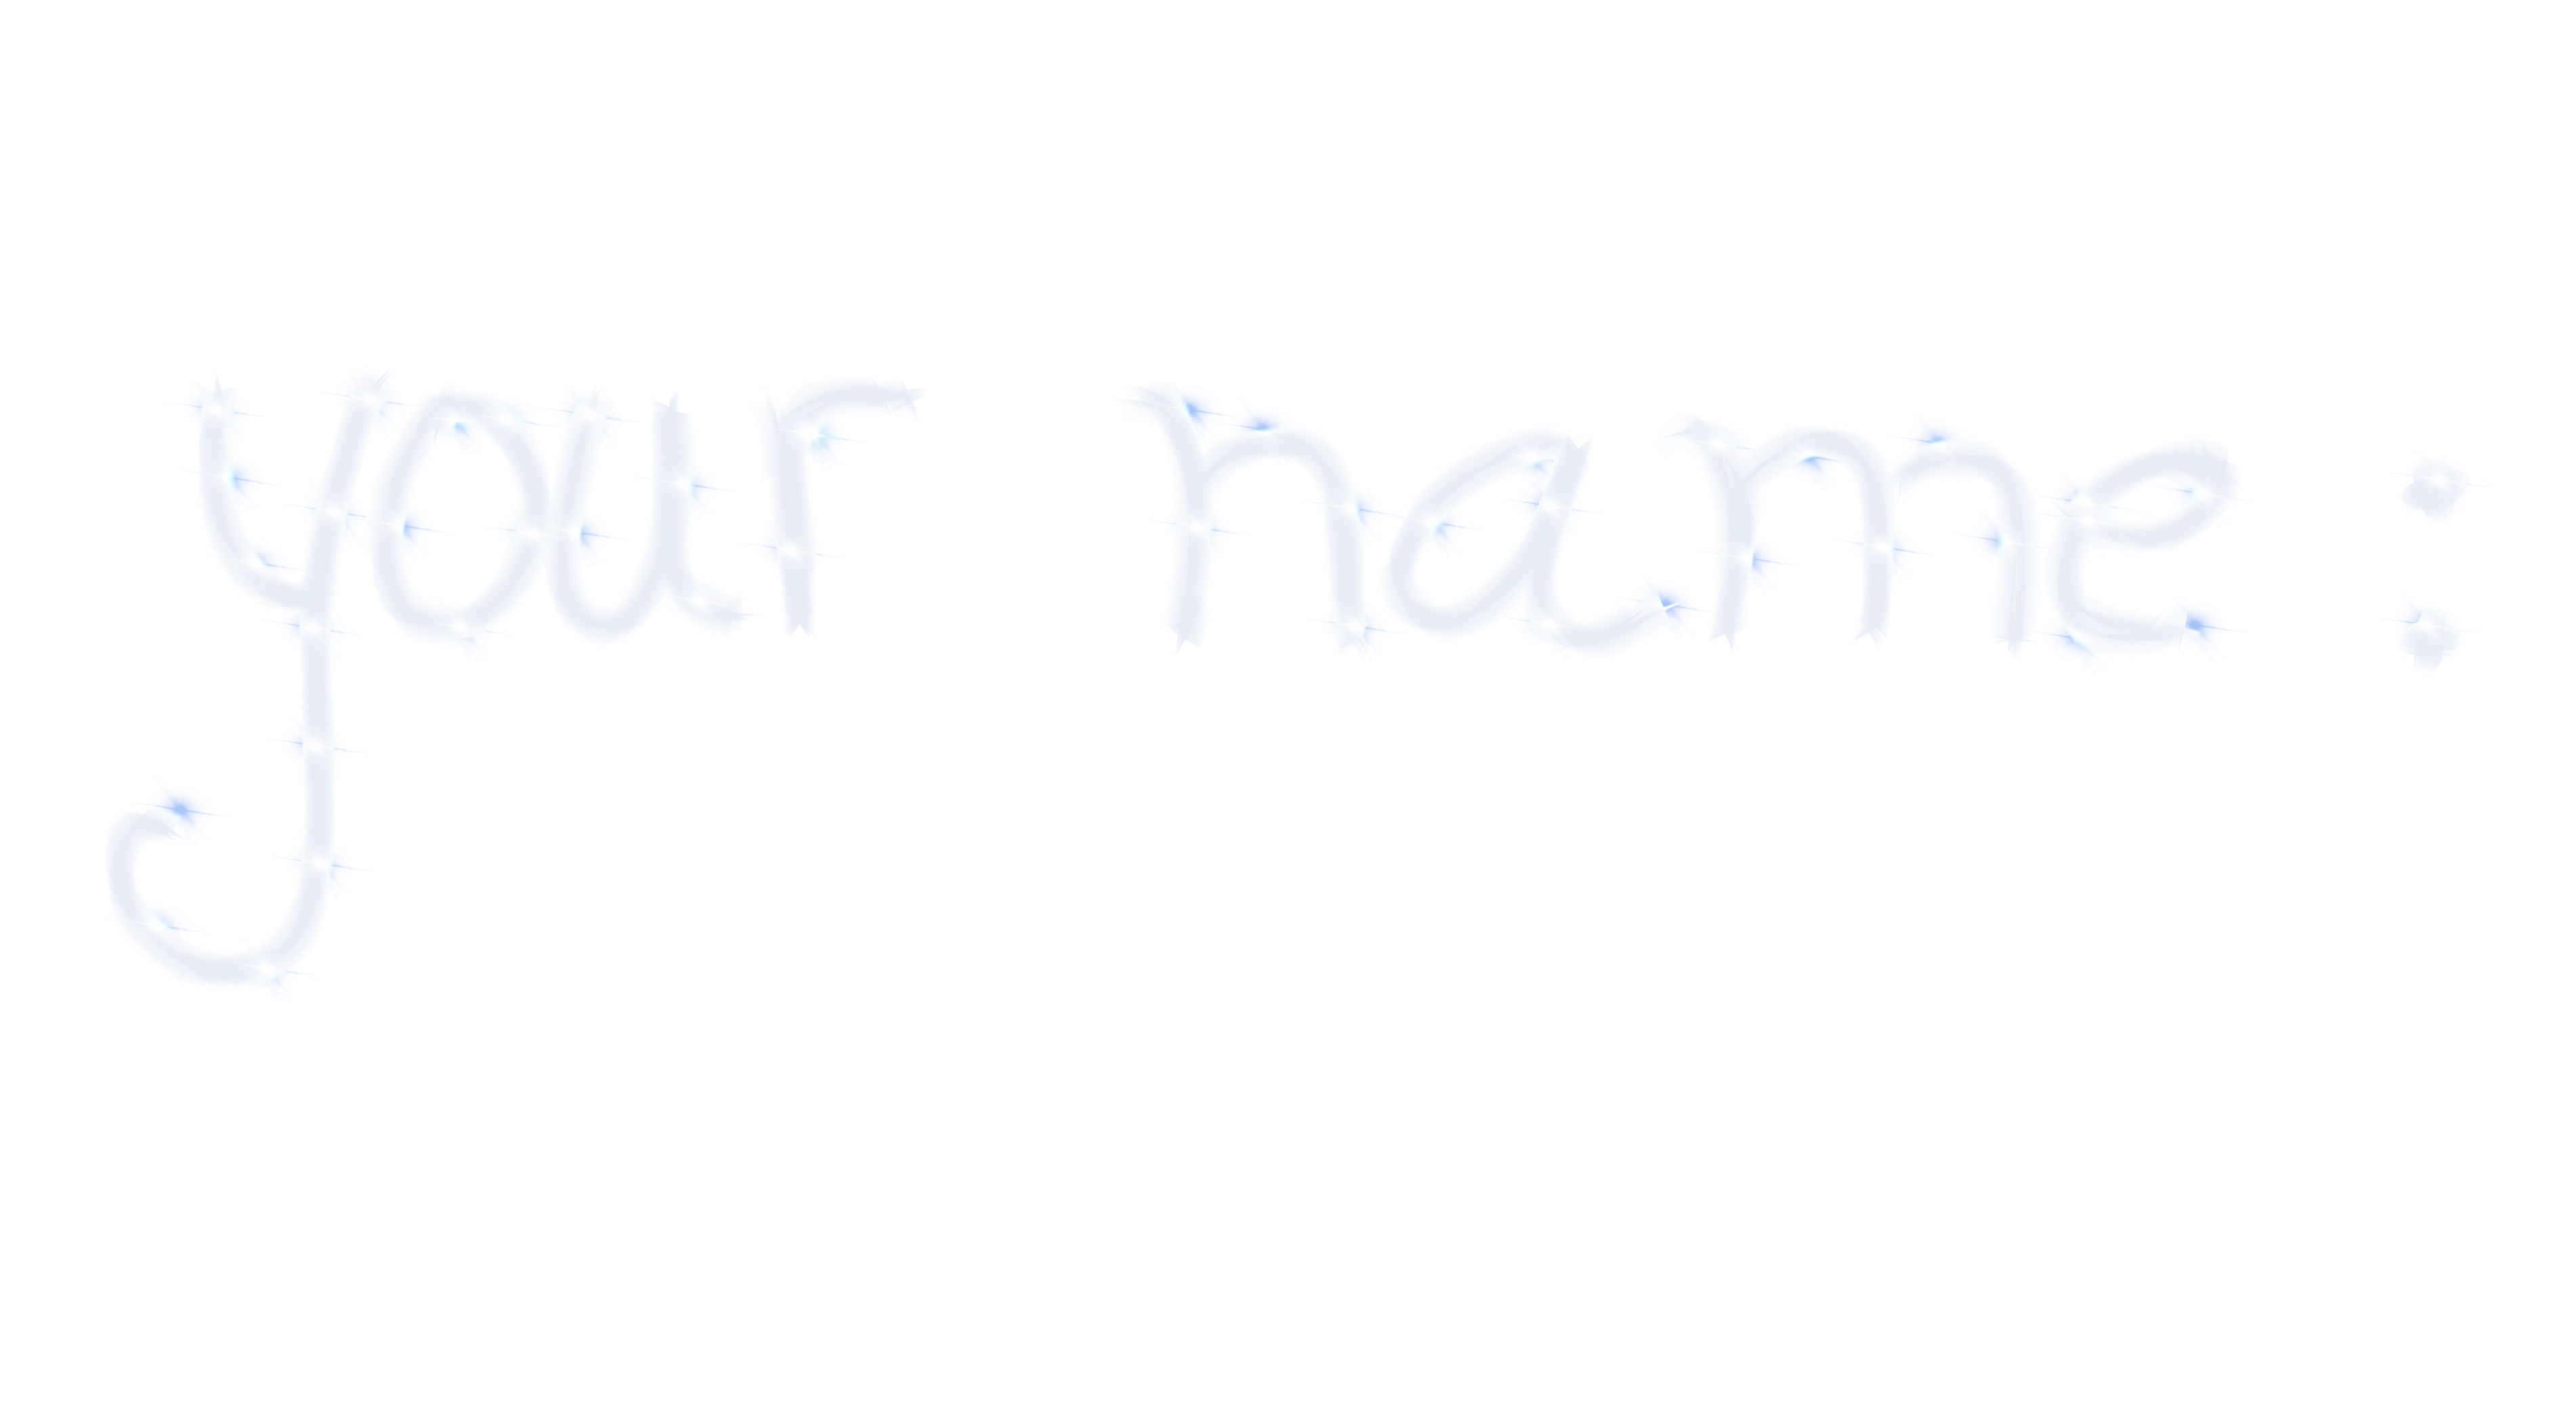 your name :